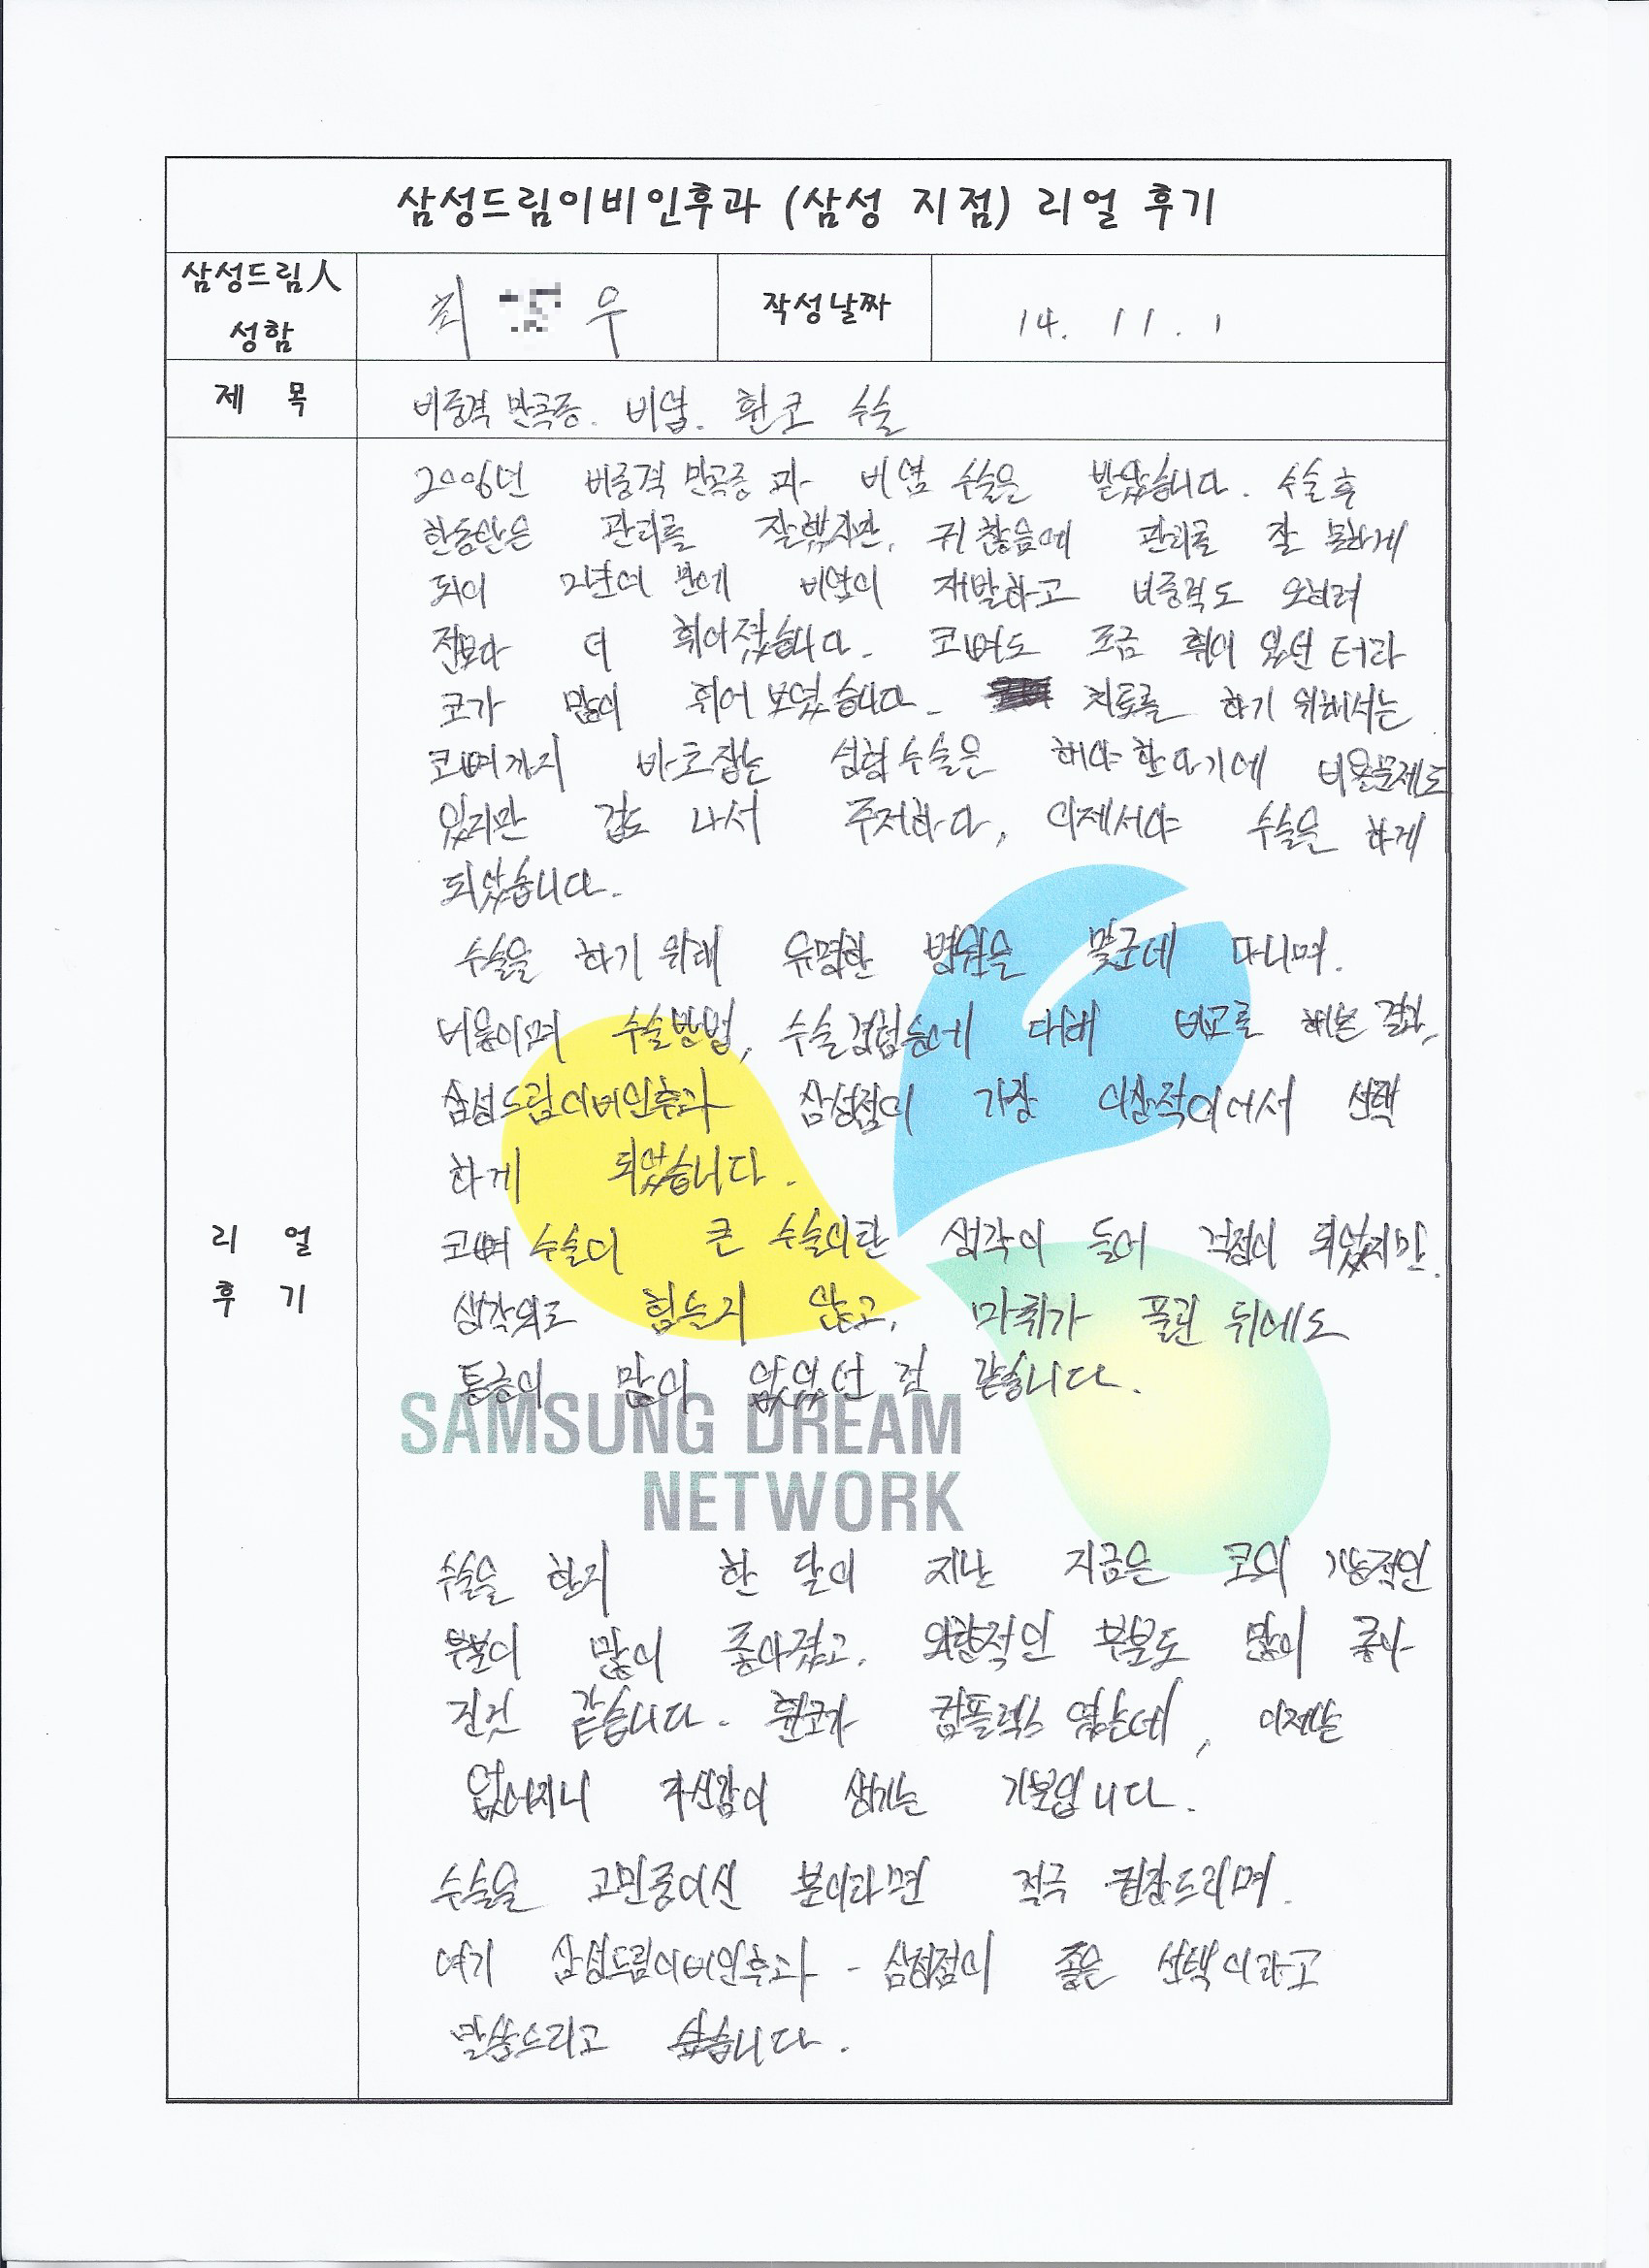 삼성드림이비인후과 (삼성 지점) 리얼 후기
삼성드림人
성함
최 우
작성날짜
14. 11. 1
제 목
비중격 만곡증. 비염. 휜 코 수술
2006년 비중격 만곡증과 비염 수술은 받았습니다. 수술 후
한동안은 관리를 잘했지만, 귀찮음에 관리를 잘 못하게
되어 비염이 재발하고 비중격도 오히려
전보다 더 휘어졌습니다. 코뼈도 조금 휘어 있던 터라
코가 많이 휘어 보였습니다. 치료를 하기 위해서는
코뼈까지 바로잡는 성형수술은 해야한다기에 비용문제도
있지만 겁도 나서 주저하다, 이제서야 수술을 하게
되었습니다.
수술을 하기 위해 유명한 병원을 몇군데 다니며.
비용이며 수술방법, 수술경험등에 대해 비교를 해본 결과,
삼성드림이비인후과 삼성점이 가장 이상적이어서 선택
하게 되었습니다.
리 얼
후 기
코뼈 수술이 큰 수술이란 생각이 들어 걱정이 되었지만.
생각외로 힘들지 않고, 마취가 풀린 뒤에도
통증이 많이 없었던 것 같습니다.
SAMSUNG DREAM
NETWORK
수술을 한지 한 달이 지난 지금은 코의 기능적인
부분이 많이 좋아졌고, 외향적인 부분도 많이 좋아
진것 같습니다. 휜코가 컴플렉스 였는데, 이제는
없어지니 자신감이 생기는 기분입니다.
수술을 고민중이신 분이라면 적극 권장드리며.
여기 삼성드림이비인후과 - 삼성점이 좋은 선택이라고
말씀드리고 싶습니다.